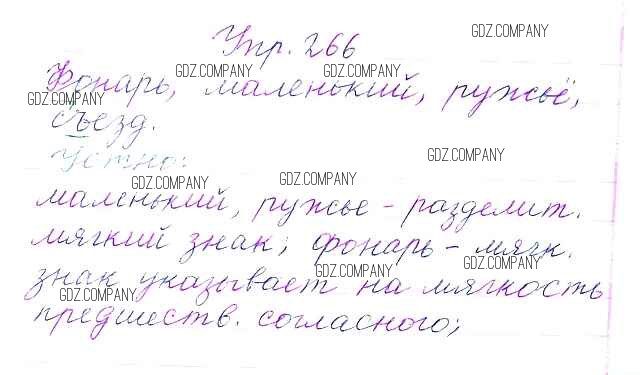 Упр. 266
GDZ.COMPANY
GDZ.COMPANY GDZ.COMPANY
Фонарь, маленький, ружьё,
GDZ.COMPANY
съезд.
Устно:
GDZ.COMPANY
GDZ.COMPANY GDZ.COMPANY
маленький, ружье - разделит.
мягкий знак; фонарь - мягк.
GDZ.COMPANY GDZ.COMPANY
знак указывает на мягкость
GDZ.COMPANY
предшеств. согласного;